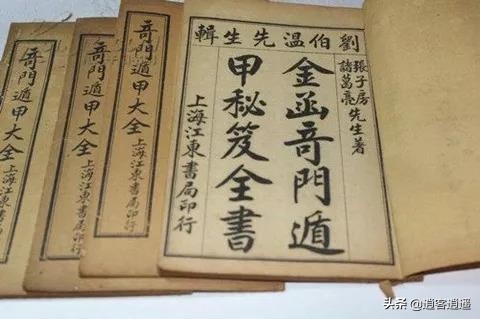 劉伯溫先生輯
張子房
諸葛亮先生著
金函竒門遁
甲秘笈全書
上海江東書局印行
竒門遁甲大全
上海江東書局印行
竒門遁甲大全
上海江東書局印行
竒門遁甲大全
头条 @逍客逍遥